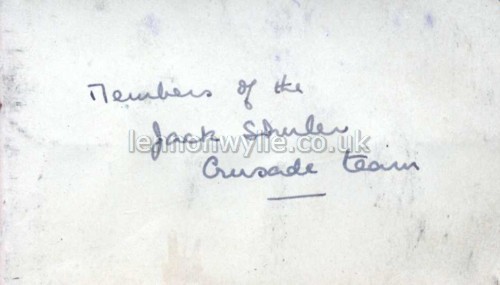 Members of the
Jack Shuler
Crusade team
lennonwylie.co.uk